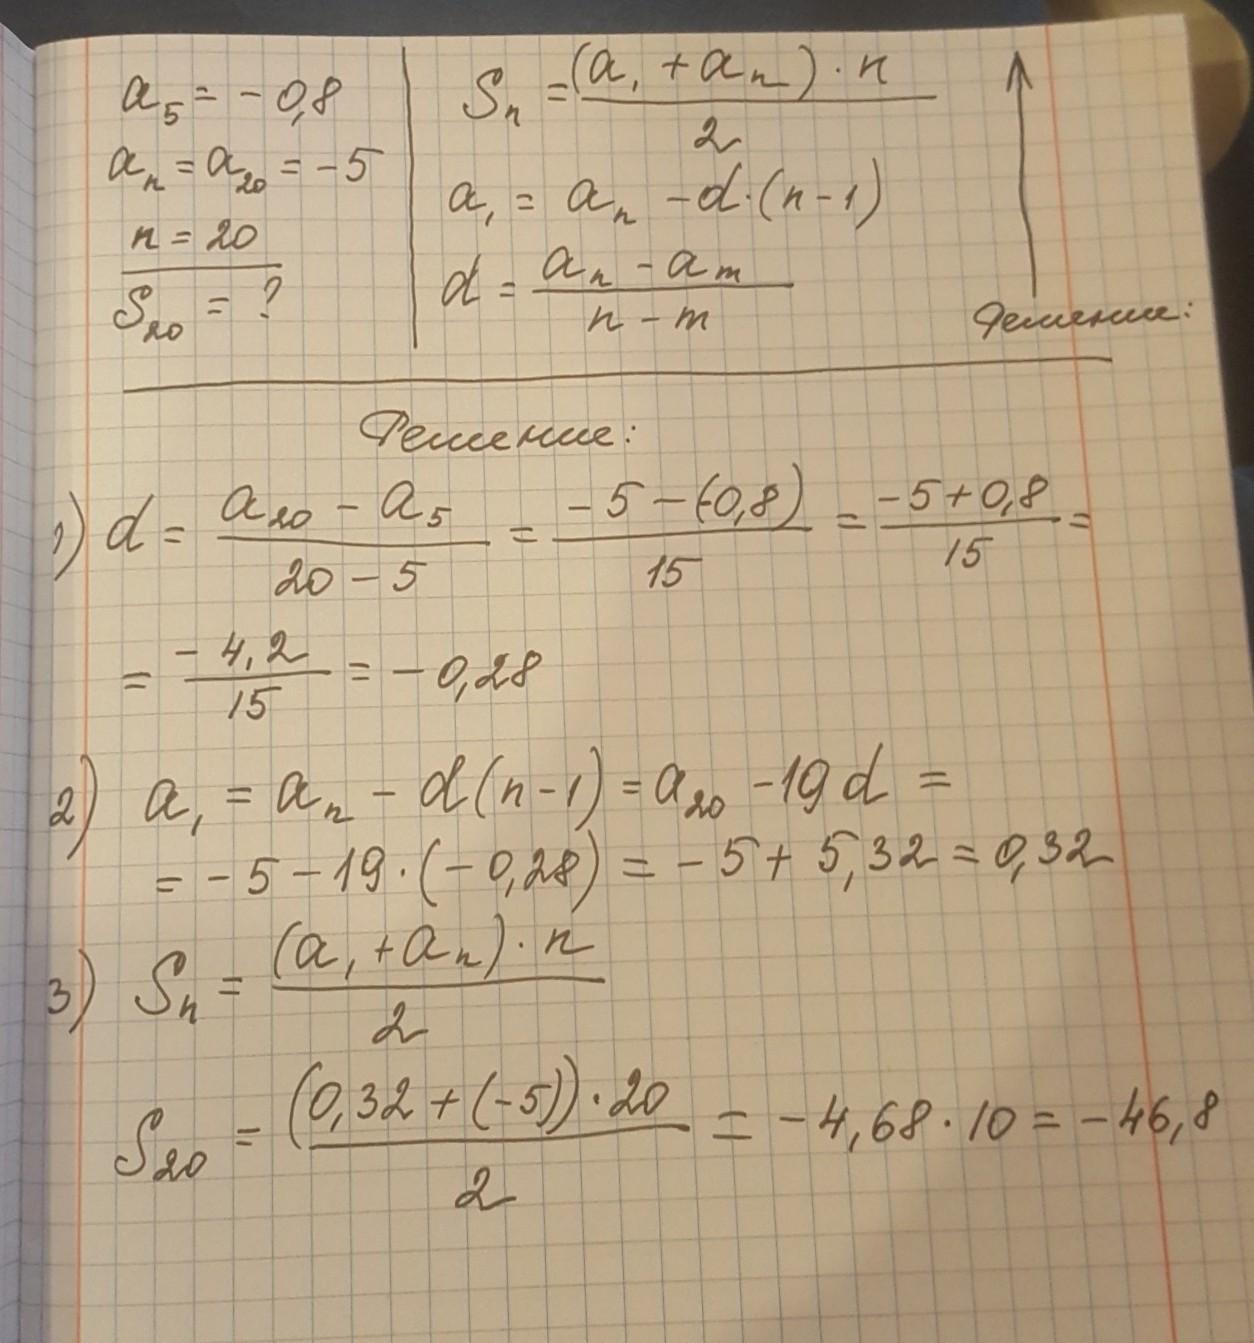 a₅ = -0,8
aₙ = a₂₀ = -5
n = 20
S₂₀ = ?
Sₙ = (a₁ + aₙ) · n / 2
a₁ = aₙ - d·(n-1)
d = aₙ - aₘ / n - m
Решение:
Решение:
1) d = a₂₀ - a₅ / 20 - 5 = -5 - (-0,8) / 15 = -5 + 0,8 / 15 =
= -4,2 / 15 = -0,28
2) a₁ = aₙ - d(n-1) = a₂₀ - 19d =
= -5 - 19·(-0,28) = -5 + 5,32 = 0,32
3) Sₙ = (a₁ + aₙ) · n / 2
S₂₀ = (0,32 + (-5)) · 20 / 2 = -4,68 · 10 = -46,8